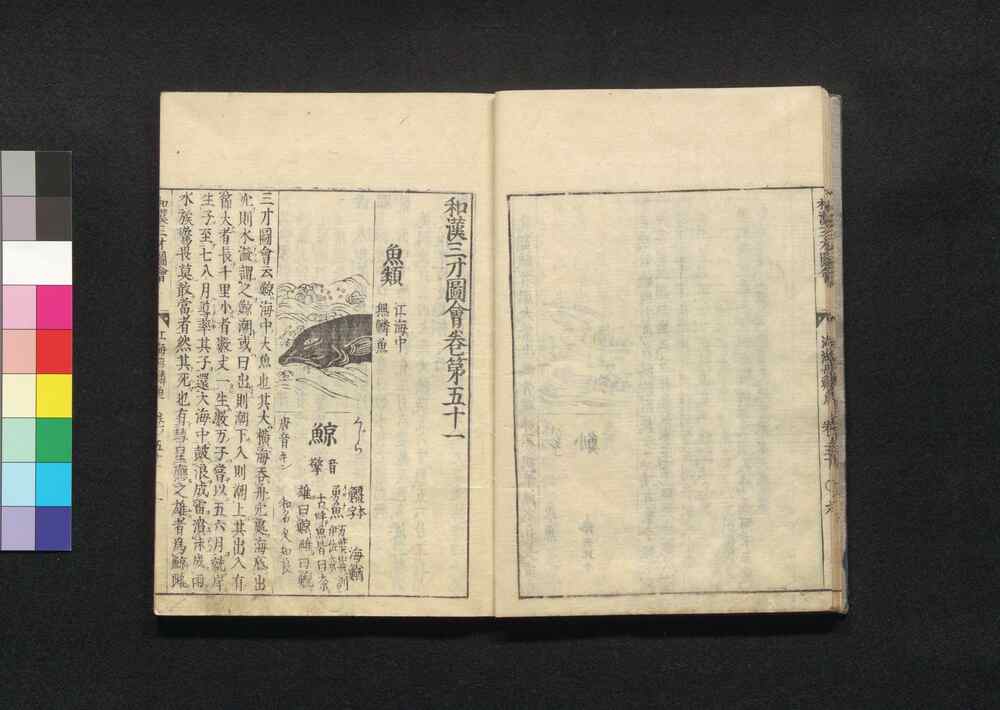 和漢三才圖會
卷之五十
和漢三才圖會卷第五十一
魚類
江海中
無鱗魚
くじら
鯨
音
擎
唐音キン
海鰌
勇魚
和名久知良
三才圖會云鯨海中大魚也其大橫海吞舟穴處海底出
穴則水溢謂之鯨潮或曰出則潮下入則潮上其出入有
節大者長千里小者數丈一生數万子常以五六月就岸
生子至七八月導率其子還大海中鼓浪成雷濆沫成雨
水族驚畏莫敢當者然其死也有彗星應之雄者爲鯨雌
和漢三才圖會
江海無鱗魚